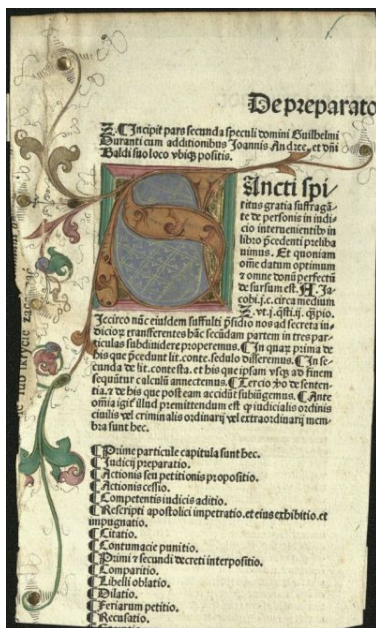 De preparato
Incipit pars secunda speculi domini Guilhelmi
Duranti cum additionibus Joannis Andree, et dñi
Baldi suo loco vbiqз positis.
SAncti spi⸗
ritus gratia suffragã⸗
te de personis in indi⸗
cio interuenientibꝰ in
libro p̄cedenti preliba
uimus. Et quoniam
om̄e datum optimum
⁊ omne donũ perfectũ
de sursum est. Ja⸗
cobi.j.c.circa medium
.xv.j.q̄sti.ij.
Iccirco nũc eiusdem suffulti p̄sidio nos ad secreta in⸗
diciorꝝ transferentes hãc secũdam partem in tres par⸗
ticulas subdiuidere properemus. ¶ In quarꝝ prima de
his que p̄cedunt lit.conte.sedulo disseremus. ¶ In se⸗
cunda de lit.contesta. et his que ipsam vsqз ad finem
sequũtur calculũ annectemus. ¶ Tercio ꝟo de senten⸗
tia. et de his que post eam accidũt subiũgemus. ¶ Ante
omĩa igit᷑ illud premittendum est ꝙ iudicialis ordinis
ciuilis vel criminalis ordinarij vel extraordinarij mem⸗
bra sunt hec.
¶ Prime particule capitula sunt hec.
¶ Iudicij preparatio.
¶ Actionis seu petitionis propositio.
¶ Actionis cessio.
¶ Competentis iudicis aditio.
¶ Rescripti apostolici impetratio.et eius exhibitio.et
impugnatio.
¶ Citatio.
¶ Contumacie punitio.
¶ Primi ⁊ secundi decreti interpositio.
¶ Comparitio.
¶ Libelli oblatio.
¶ Dilatio.
¶ Feriarum petitio.
¶ Recusatio.